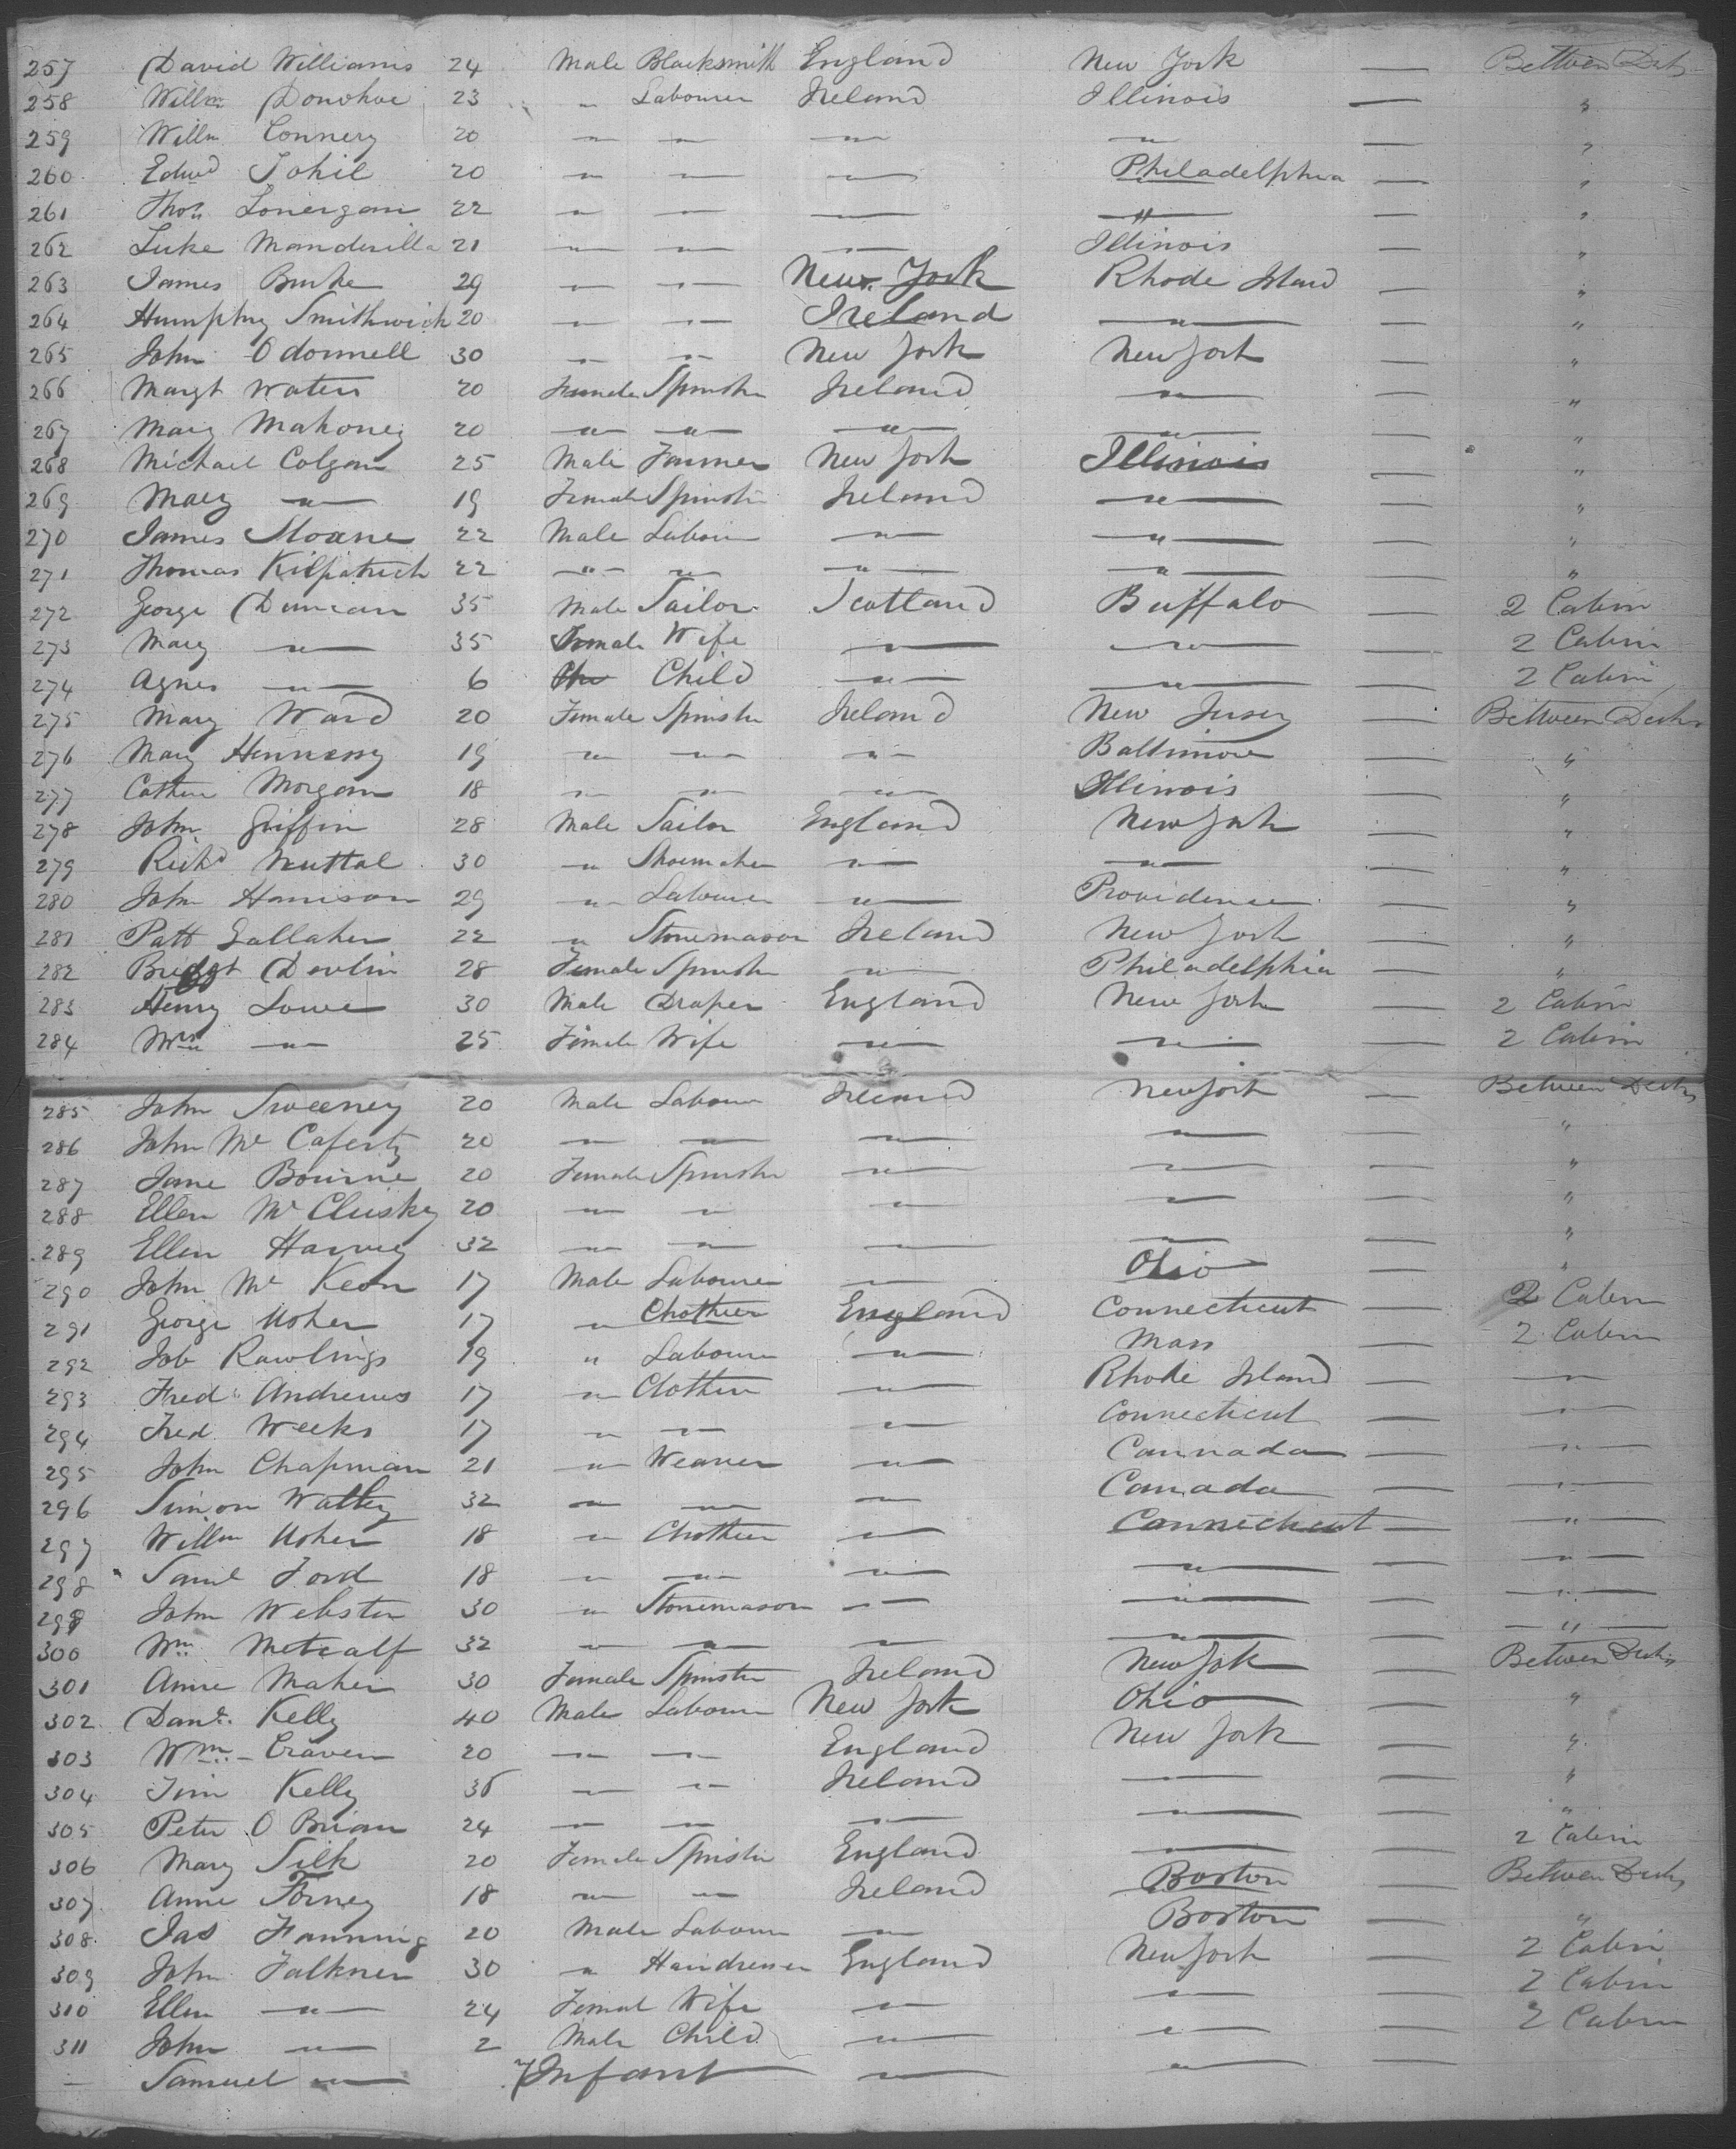 257 David Williams 24 Male Blacksmith England New York — Bettween Decks
258 Willm Donohoe 23 " Labourer Ireland Illinois — "
259 Willm Connery 20 " " " " — "
260 Edwd Tohil 20 " " " Philadelphia — "
261 Thos Lonergan 22 " " — " — "
262 Luke Mandevilla 21 " " " Illinois — "
263 James Burke 29 " " New York Rhode Island — "
264 Humphry Smithwich 20 " " Ireland " — "
265 John Odonnell 30 " " New York New York — "
266 Margt Waters 20 Female Spinster Ireland " — "
267 Mary Mahoney 20 " " " " — "
268 Michael Colgan 25 Male Farmer New York Illinois — "
269 Mary " 19 Female Spinster Ireland " — "
270 James Sloane 22 Male Labour " " — "
271 Thomas Kilpatrick 22 " " " " — "
272 George Duncan 35 Male Tailor Scotland Buffalo — 2 Cabin
273 Mary " 35 Female Wife — " — 2 Cabin
274 Agnes " 6 Child " " — 2 Cabin
275 Mary Ward 20 Female Spinster Ireland New Jersey — Bettween Decks
276 Mary Hennessy 19 " " " Baltimore — "
277 Cathen Morgan 18 " " " Illinois — "
278 John Griffin 28 Male Tailor England New York — "
279 Richd Nuttal 30 " Shoemaker " " — "
280 John Harrison 29 " Labourer " Providence — "
281 Patt Gallaher 22 " Stonemason Ireland New York — "
282 Bridgt Devlin 28 Female Spinster " Philadelphia — "
283 Henry Lowe 30 Male Draper England New York — 2 Cabin
284 Mrs " 25 Female Wife " " — 2 Cabin
285 John Sweeney 20 Male Labour Ireland New York — Between Decks
286 John Mc Caferty 20 " " " " — "
287 Jane Bourne 20 Female Spinster " " — "
288 Ellen Mc Clusky 20 " " " " — "
289 Ellen Harvey 32 " " " " — "
290 John Mc Keon 17 Male Labourer " Ohio — "
291 George Usher 17 " Clothier England Connecticut — 2 Cabin
292 Job Rawlings 19 " Labour " Mass — 2 Cabin
293 Fredk Andrews 17 " Clothier " Rhode Island — "
294 Fred Weeks 17 " " " Connecticut — "
295 John Chapman 21 " Weaver " Cannada — "
296 Simon Watley 32 " " " Canada — "
297 Willm Usher 18 " Clothier " Connecticut — "
298 Saml Ford 18 " " " " — "
299 John Webster 30 " Stonemason " " — "
300 Wm Metcalf 32 " " " " — "
301 Anne Maher 30 Female Spinster Ireland New York — Between Decks
302 Danl Kelly 40 Male Labour New York Ohio — "
303 Wm Craven 20 " " England New York — "
304 Tim Kelly 36 " " Ireland — — "
305 Peter O Brian 24 " " " " — "
306 Mary Silk 20 Female Spinster England — — 2 Cabin
307 Anne Forney 18 " " Ireland Boston — Between Decks
308 Jas Fanning 20 Male Labour " Boston — "
309 John Falkner 30 " Hairdresser England New York — 2 Cabin
310 Ellen " 24 Femal Wife " " — 2 Cabin
311 John " 2 Male Child " " — 2 Cabin
— Samuel " Infant " " —